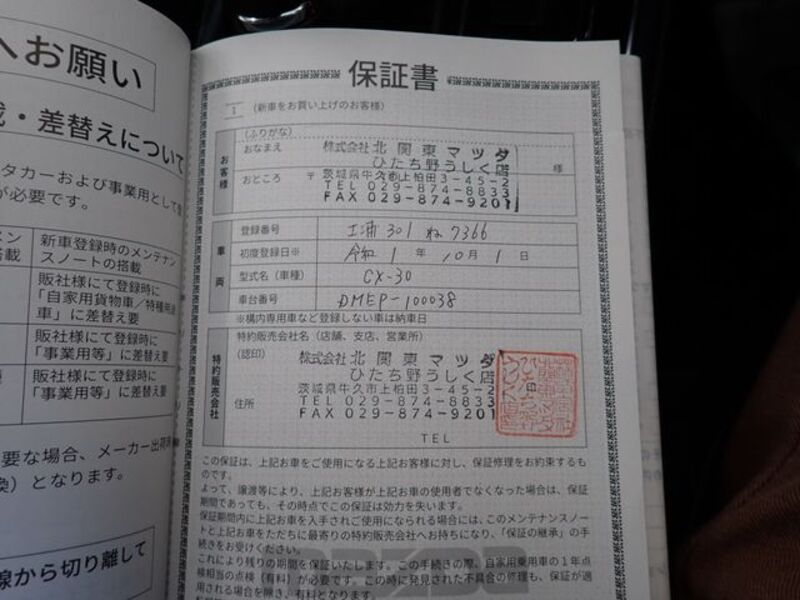 へお願い
載・差替えについて
タカーおよび事業用として
が必要です。
新車登録時のメンテナン
スノートの搭載
販社様にて登録時に
「自家用貨物車／特種用途
車」に差替え要
販社様にて登録時に
「事業用等」に差替え要
販社様にて登録時に
「事業用等」に差替え要
要な場合、メーカー出荷時
換）となります。
線から切り離して
保証書
1 (新車をお買い上げのお客様)
お客様
(ふりがな)
おなまえ 株式会社 北関東マツダ
ひたち野うしく店 様
おところ 〒 茨城県牛久市上柏田3-45-2
TEL 029-874-8833
FAX 029-874-9201
車両
登録番号 土浦 301 ね 7366
初度登録日※ 令和 1 年 10 月 1 日
型式名（車種） CX-30
車台番号 DMEP-100038
※構内専用車など登録しない車は納車日
特約販売会社
特約販売会社名（店舗、支店、営業所）
(認印) 株式会社 北関東マツダ
ひたち野うしく店
茨城県牛久市上柏田3-45-2
住所 TEL 029-874-8833
FAX 029-874-9201
TEL
この保証は、上記お車をご使用になる上記お客様に対し、保証修理をお約束するも
のです。
よって、譲渡等により、上記お客様が上記お車の使用者でなくなった場合は、保証
期間であっても、その時点でこの保証は効力を失います。
保証期間内に上記お車を入手されご使用になられる場合には、このメンテナンスノー
トと上記お車をただちに最寄りの特約販売会社へお持ちになり、「保証の継承」の手
続きをお受けください。
これにより残りの期間を保証いたします。この手続きの際、自家用乗用車の1年点
検相当の点検（有料）が必要です。この時に発見された不具合の修理も、保証が適
用される場合を除き、有料となります。